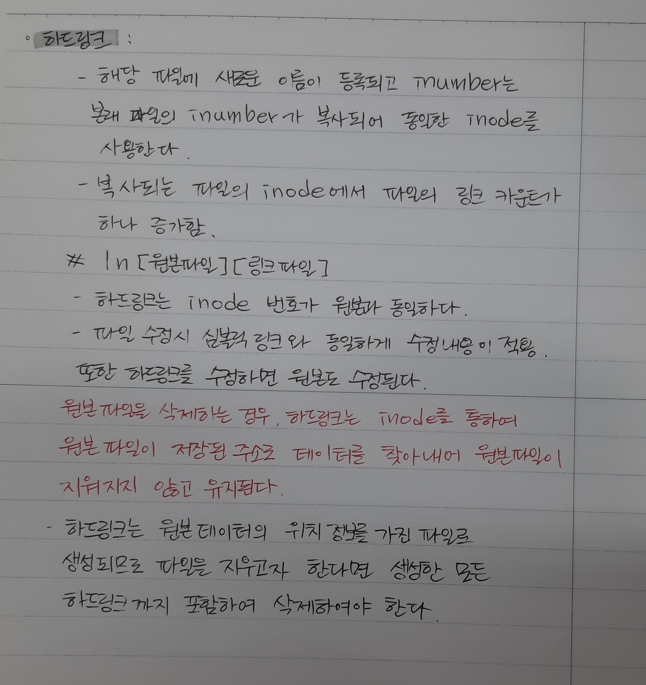 ◦ 하드링크 :
- 해당 파일에 새로운 이름이 등록되고 inumber는
본래 파일의 inumber가 복사되어 동일한 inode를
사용한다.
- 복사되는 파일의 inode에서 파일의 링크 카운트가
하나 증가함.
# ln [원본파일][링크파일]
- 하드링크는 inode 번호가 원본과 동일하다.
- 파일 수정시 심볼릭 링크와 동일하게 수정내용이 적용.
또한 하드링크를 수정하면 원본도 수정된다.
원본파일을 삭제하는 경우, 하드링크는 inode를 통하여
원본파일이 저장된 주소로 데이터를 찾아내어 원본파일이
지워지지 않고 유지된다.
- 하드링크는 원본데이터의 위치 정보를 가진 파일로
생성되므로 파일을 지우고자 한다면 생성한 모든
하드링크까지 포함하여 삭제하여야 한다.